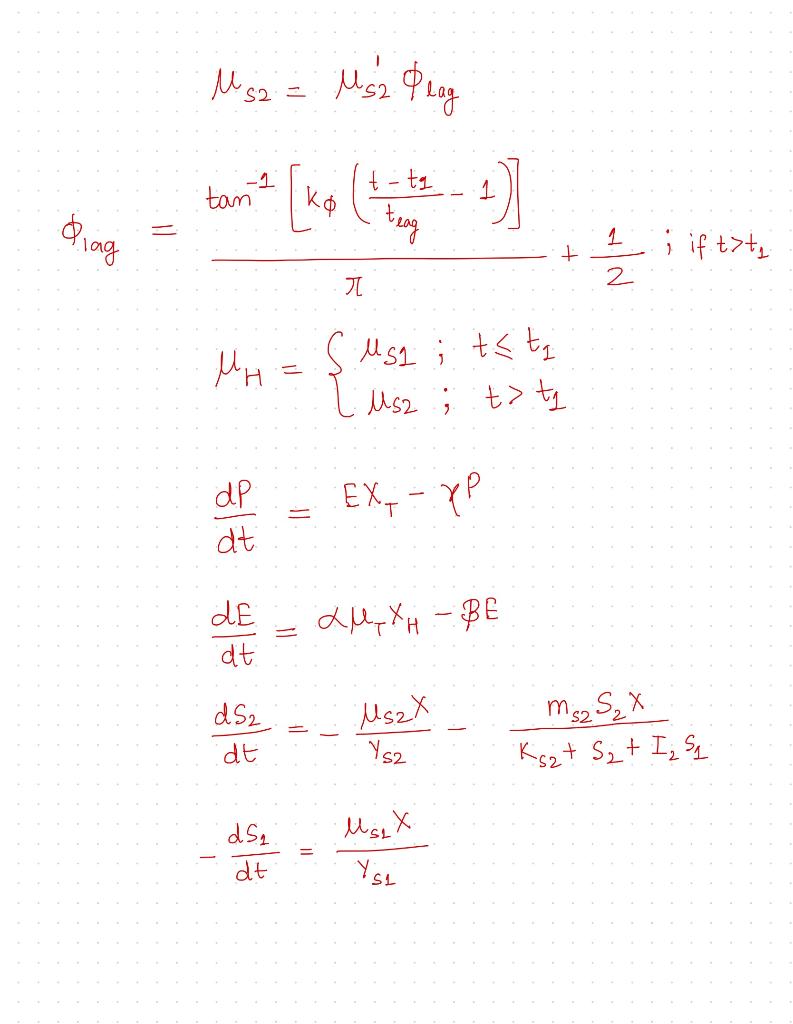 μ_{S2} = μ'_{S2} ϕ_{lag}
ϕ_{lag} = \frac{tan^{-1} [k_ϕ (\frac{t - t_1}{t_{lag}} - 1)]}{π} + \frac{1}{2} ; if t > t_1
μ_H = { μ_{S1} ; t ≤ t_1
μ_{S2} ; t > t_1
\frac{dP}{dt} = EX_T - γP
\frac{dE}{dt} = αμ_T X_H - βE
\frac{dS_2}{dt} = - \frac{μ_{S2} X}{Y_{S2}} - \frac{m_{S2} S_2 X}{K_{S2} + S_2 + I_2 S_1}
- \frac{dS_1}{dt} = \frac{μ_{S1} X}{Y_{S1}}